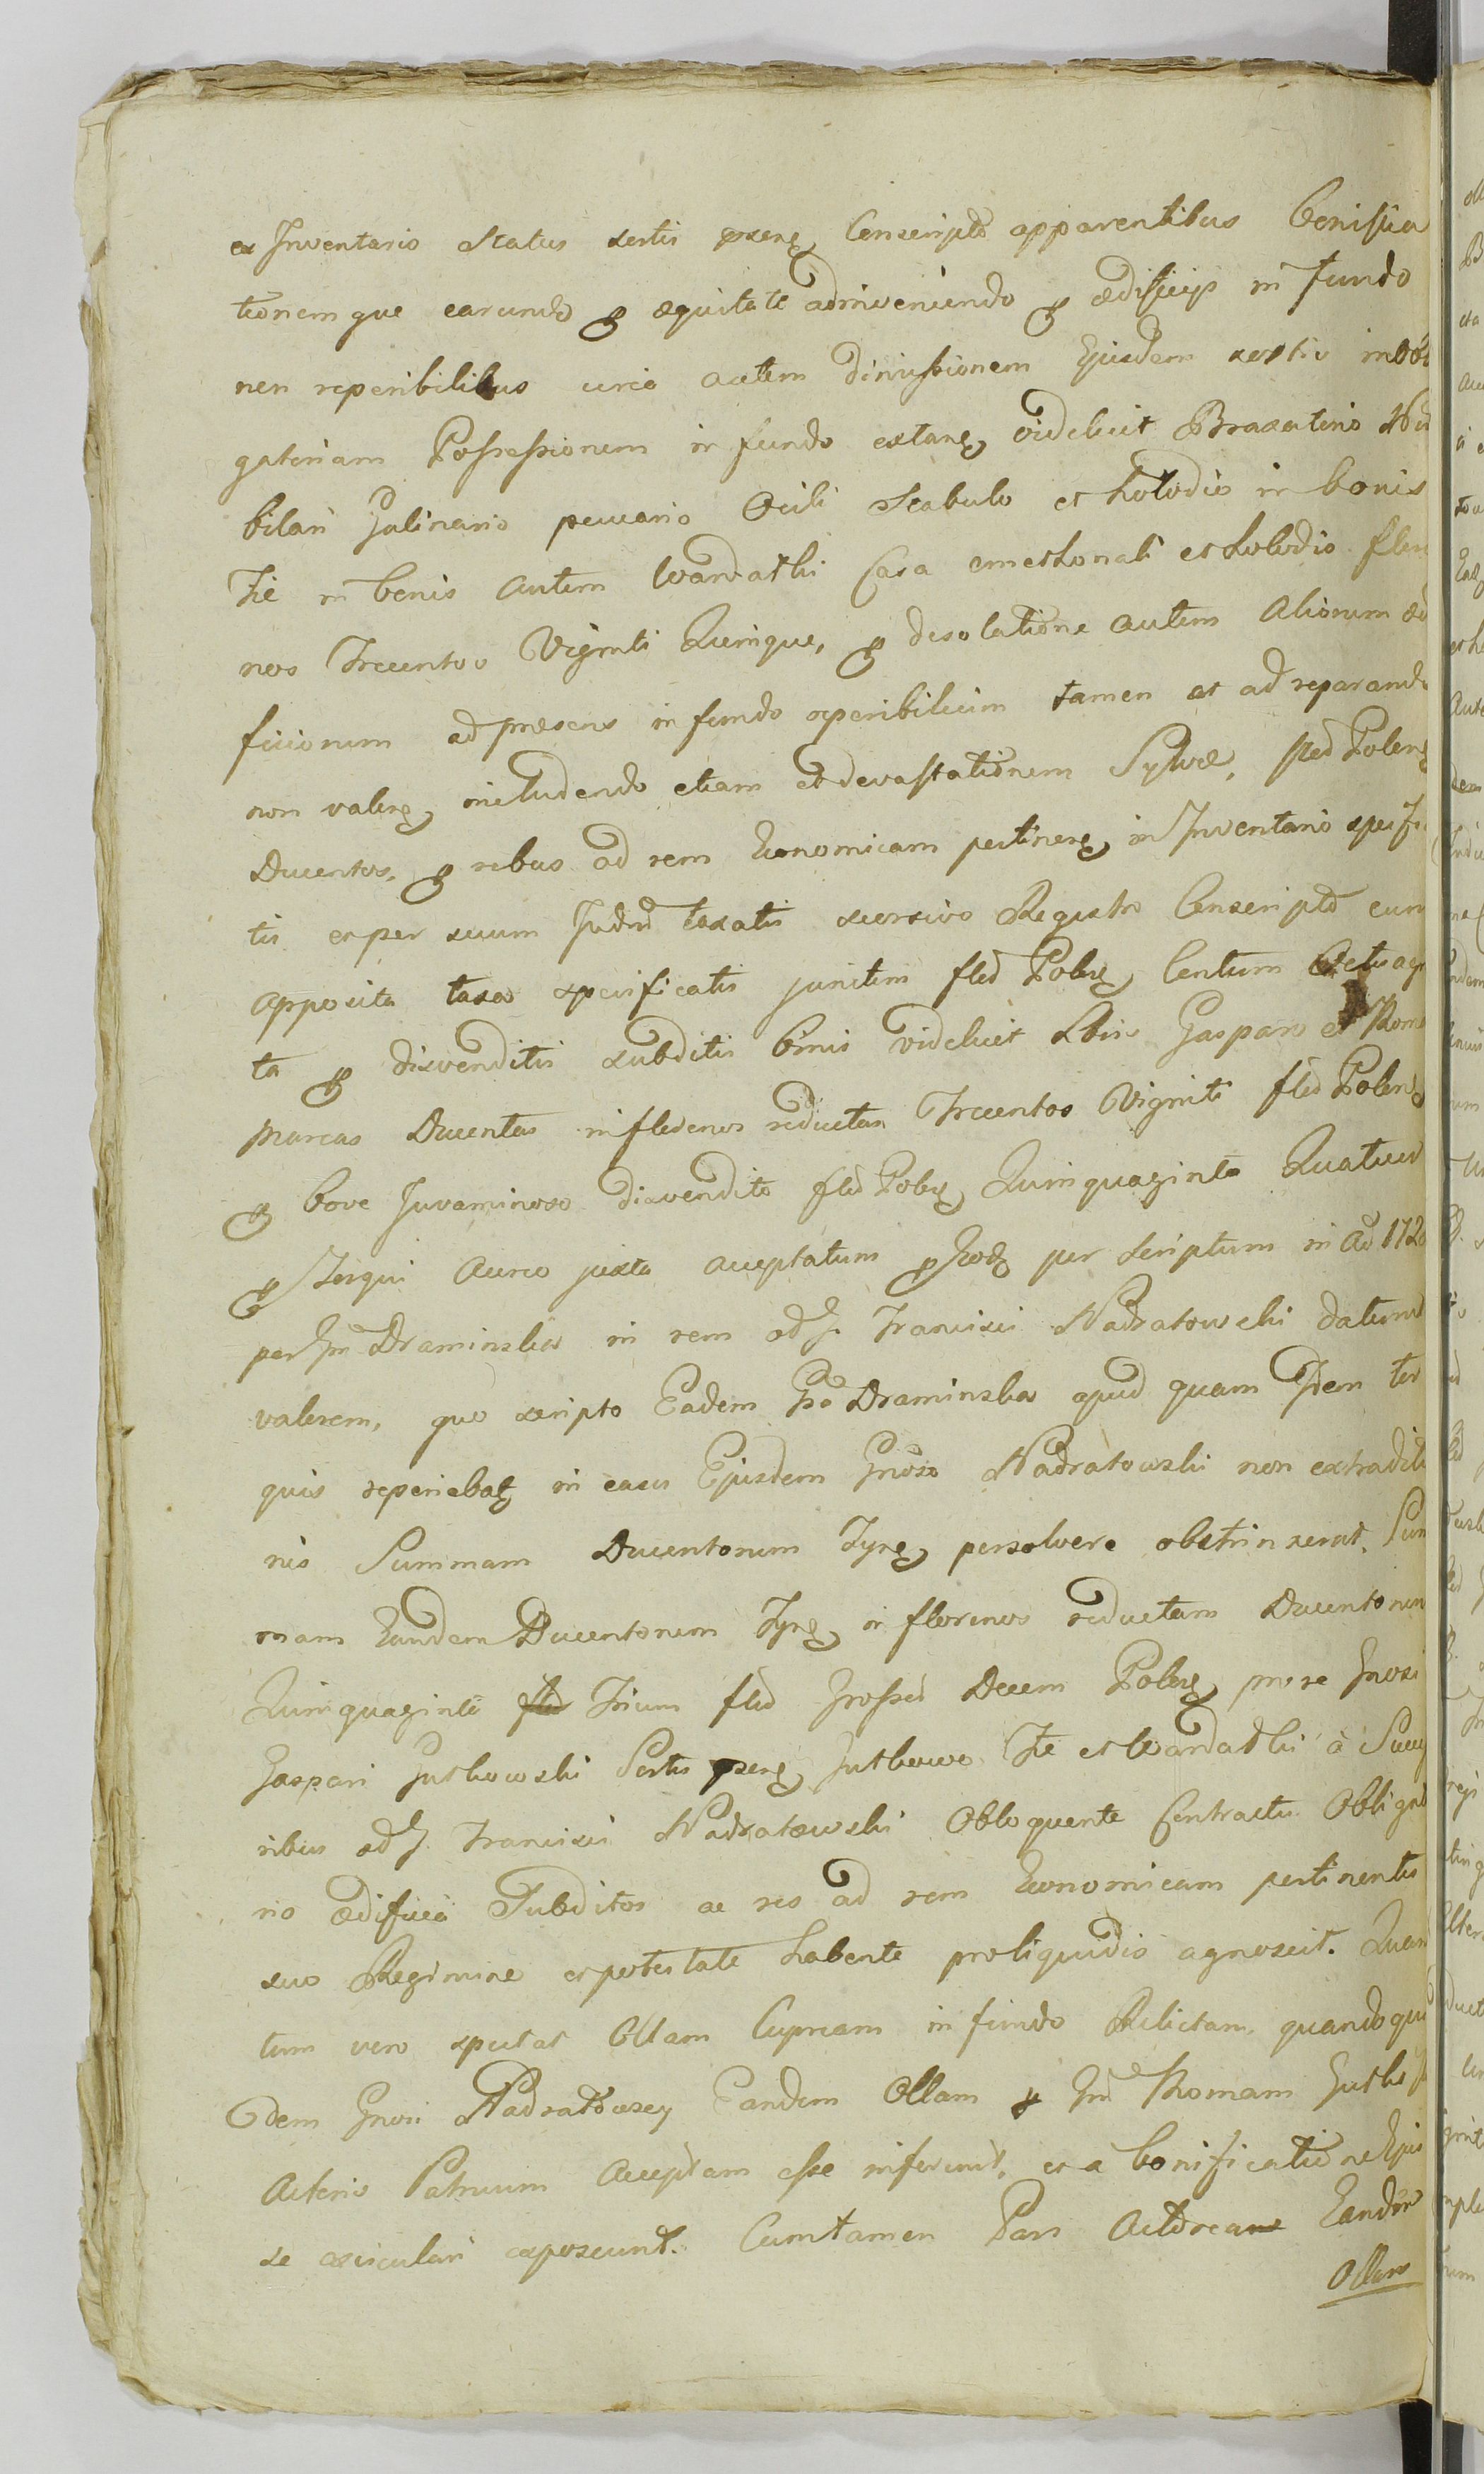 ex Inventario Status sortis conscripto apparentibus bonifica
tionemque earundo æquitate adinveniendo ædificijs in fundo
non reperibilibus circa autem dimissionem Ejusdem sortis in obli
gatoriam Possessionem in fundo extang videlicet Braxatorio
bilari Galinario pecuario Ovili Stabulo et hołodio in bonis
Tie in bonis autem Wardathi Casa emethonali et hołodio flore
nos Trecentos Viginti Quinque, desolatione autem aliorum ædi
ficiorum ad præsens in fundo reperibilium tamen et ad reparando
non valeng includendo etiam et devastationem Sylvæ, flod Poleng
Ducentos, rebus ad rem Economicam pertineng in Inventario specifica
tis et per suum taxatis seorsivo Registro Conscripto cum
apposita taxa specificatis junctim flod Polng Centum Octuagin
ta disvenditis subditis binis videlicet Gasparo et
marcas Ducentas in florenos reductas Trecentos Viginti flod Poleng
bove Juvaminoso disvendito flod Polng Quinquaginta Quatuor
Torqui Aureo juxta acceptatum per scriptum in Aō 172
per Draminska in rem Francisci Nadratowski datum
valorem, quo scripto Eadem Draminska apud quam Idem tor
quis reperiebatg in casu Ejusdem Gnoso Nadratowski non extraditi
nis Summam Ducentorum Tyng persolvere obstrinxerat. Sum
mam Eandem Ducentorum Tyng in florenos reductam Ducentorum
Quinquaginta Trium flod Grossor Decem Poleng more Gnosi
Gaspari Gutkowski Sortis Gutkowo Tie et Wardathi à Succes
ribus Francisci Nadratowski Obloquente Contractu Obligato
rio ædificia Subditos ac res ad rem Economicam pertinentes
suo Regimine et potestate habente pro liquidis agnoscit. Quan
tum vero spectat Ollam Cupream in fundo Relictam, quandoqui
dem Gnosi Nadratowscy Eandem Ollam Thomam Gutko
Actoris Patruum Acceptam esse inferunt, et a bonificatione Ejus
se exsiculari exposcunt. Cum tamen Pars Actorea Eandem
Ollam